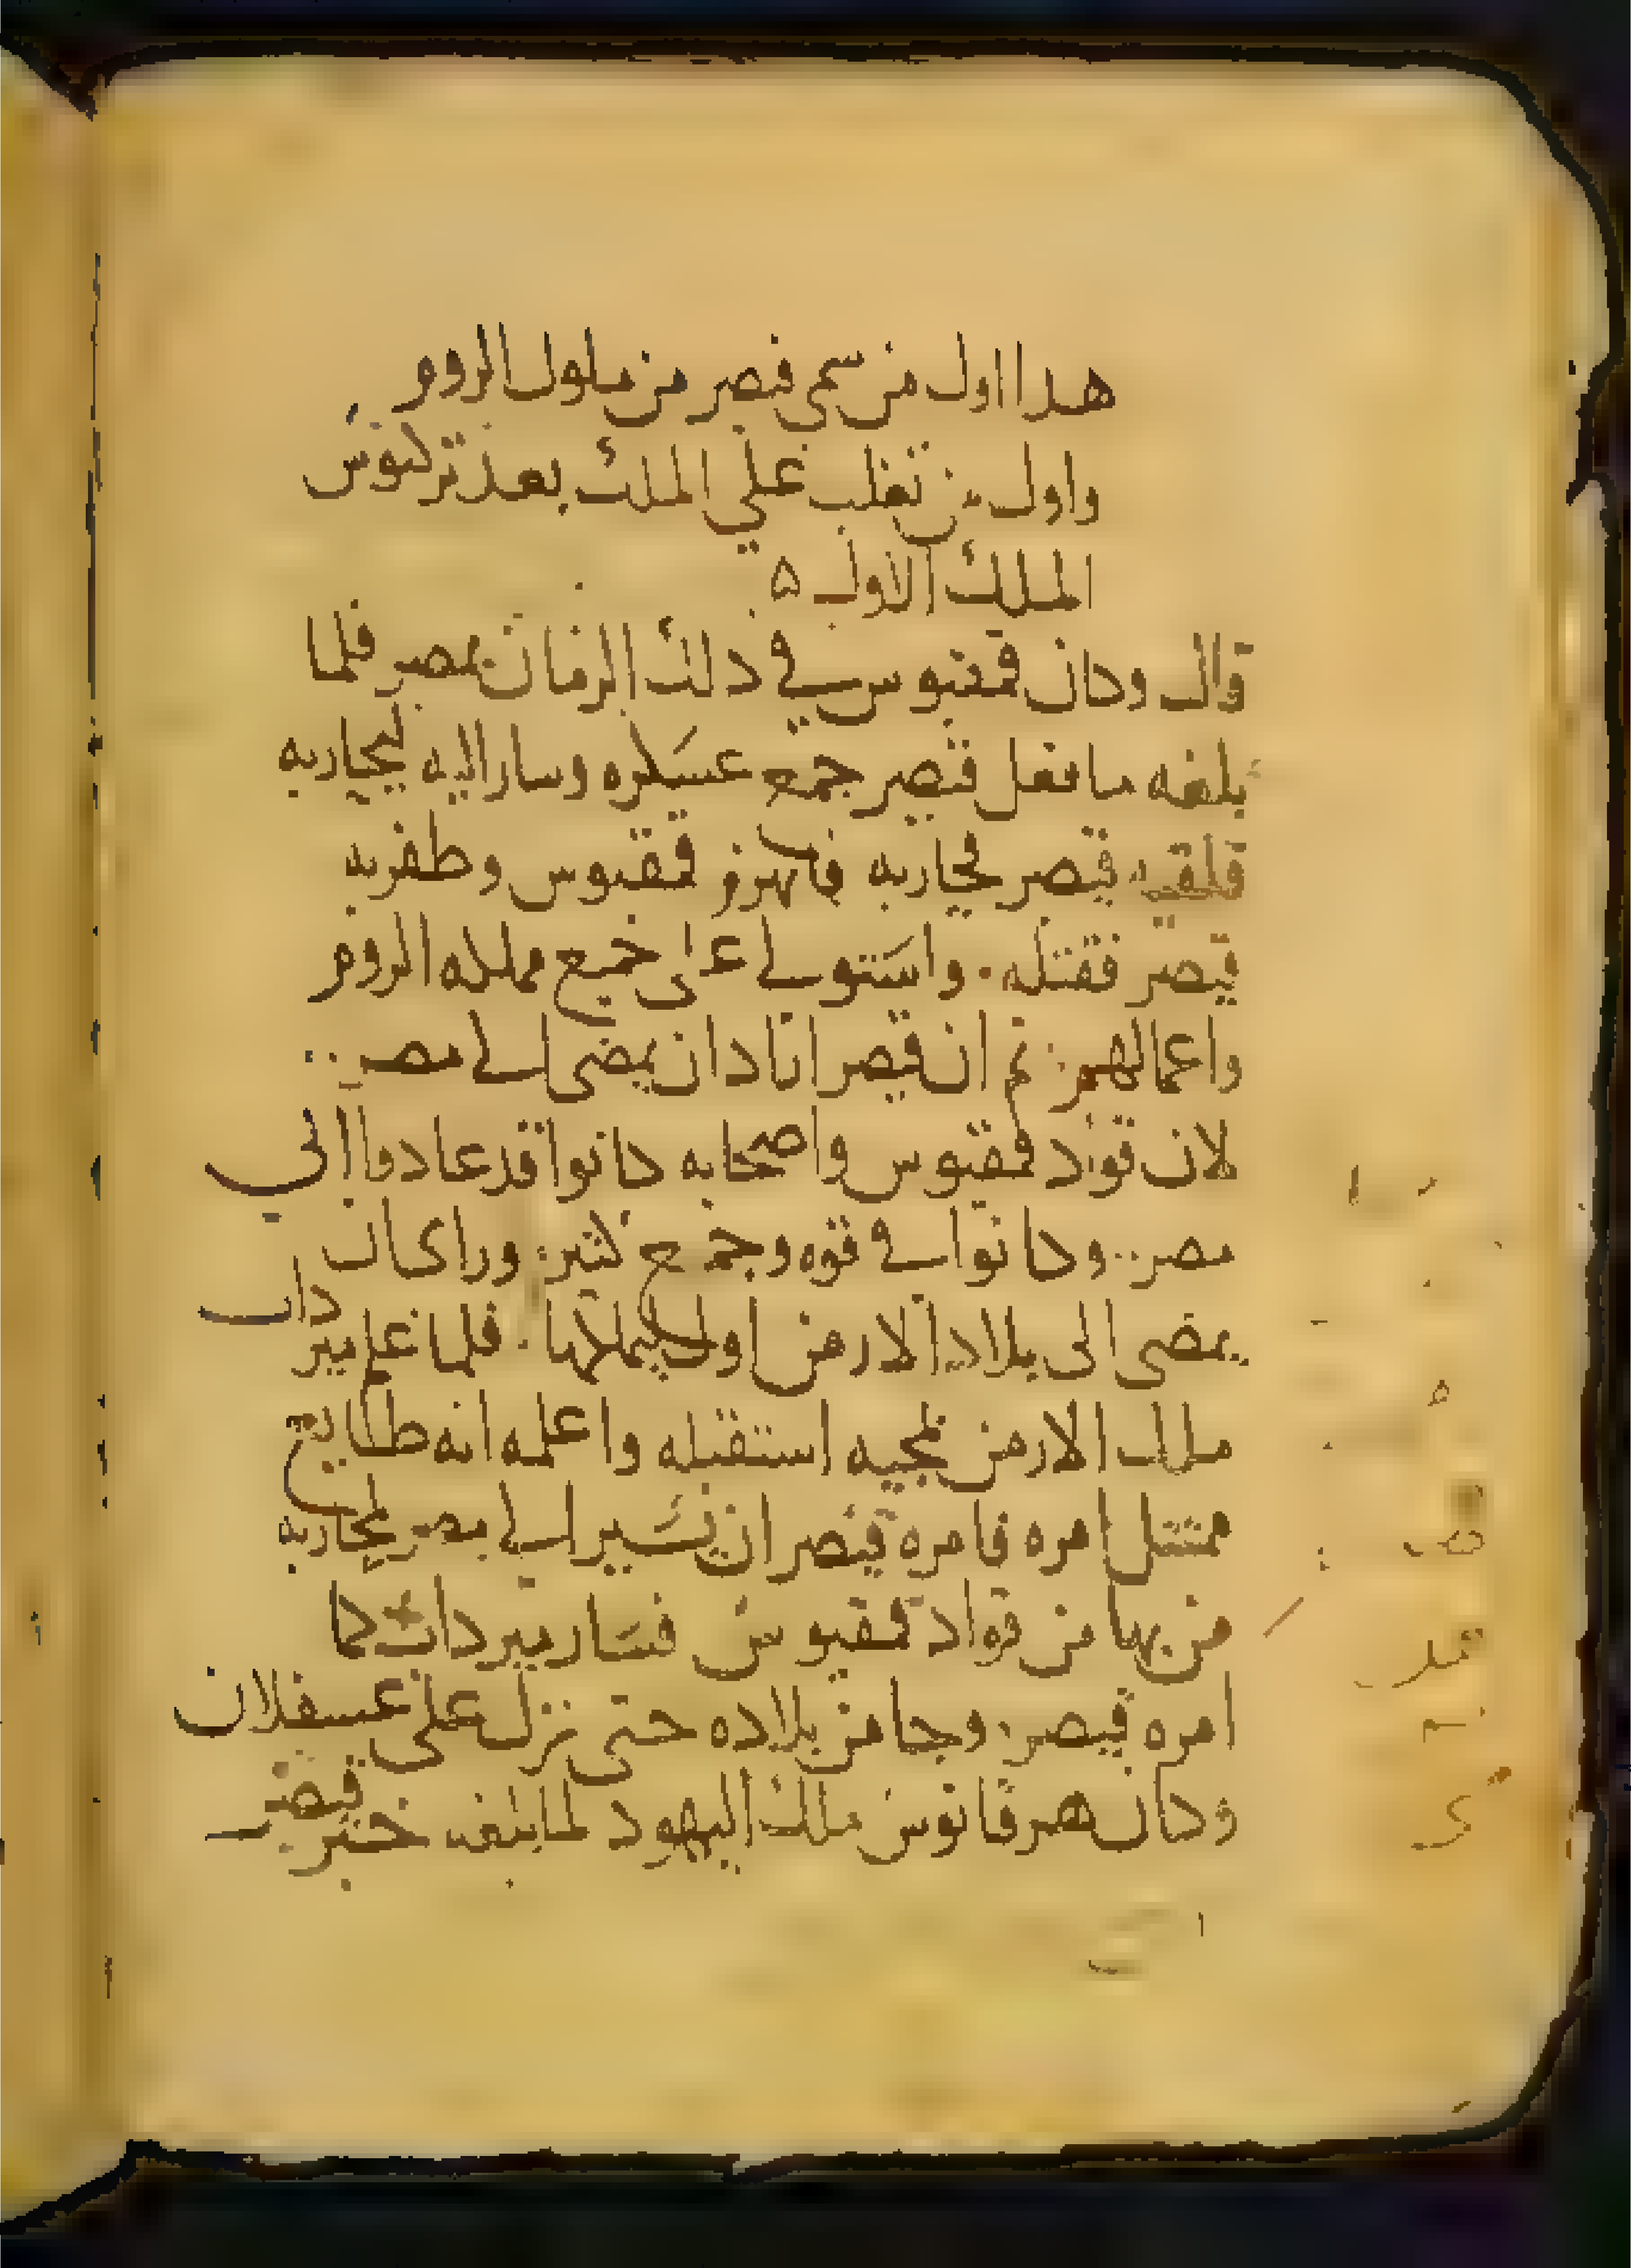 هدا اول من سمي قيصر من ملوك الروم
واول من تغلب علي الملك بعد تركنوس
الملك الاول ۵
قال وكان فمقيوس في دلك الزمان بمصر فلما
بلغه ما فعل قيصر جمع عسكره وسار اليه ليحاربه
فلقيه قيصر فحاربه فانهزم فمقيوس وظفر به
قيصر فقتله . واستولي على جميع مملكه الروم
واعمالهم : ثم ان قيصر اراد ان يمضى الي مصر ..
لان قواد فمقيوس واصحابه كانوا قد عادوا الي
مصر .. وكانوا في قوه وجمع كثير : وراى ان
يمضى الى بلاد الارمن اولا ليملكها . فلما علم ميرداث
ملك الارمن بمجيه استقبله واعلمه انه طايع
ممتثل امره فامره قيصر ان يسير الي مصر لمحاربه
من بها من قواد فمقيوس فسار ميرداث كما
امره قيصر . وجا من بلاده حتى نزل على عسقلان
وكان هرقانوس ملك اليهود لما بلغه خبر قيصر